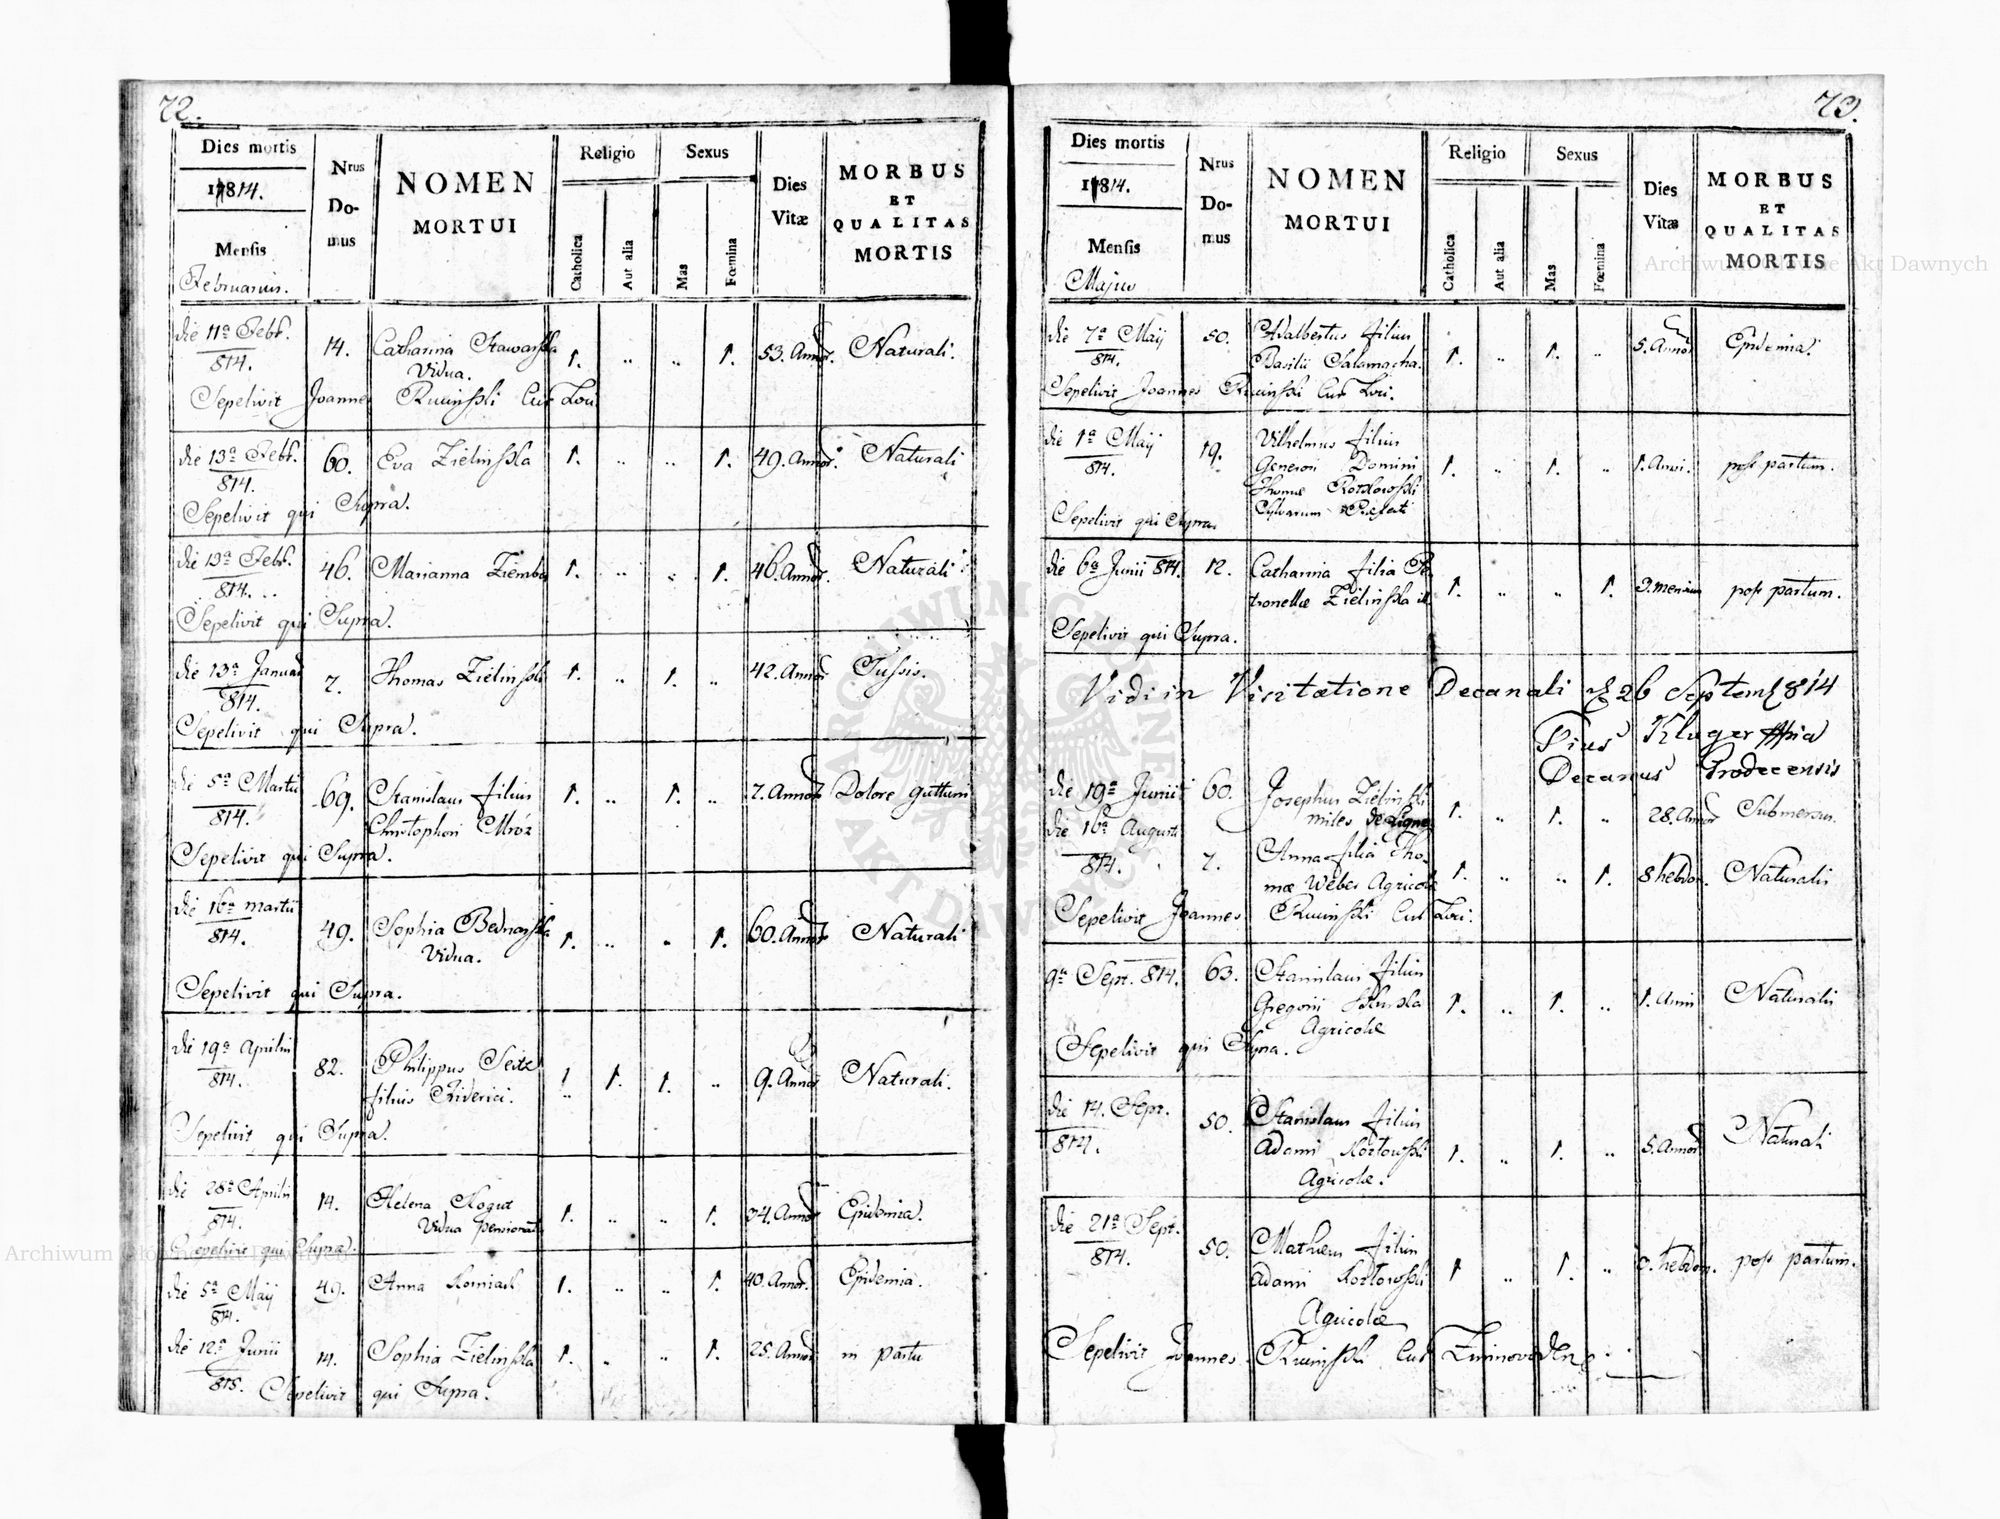 72.
Dies mortis
1814.
Mensis
Februarius.
Nrus
Do-
mus
NOMEN
MORTUI
Religio
Catholica
Aut alia
Sexus
Mas
Fœmina
Dies
Vitæ
MORBUS
ET
QUALITAS
MORTIS
die 11a Febr. 814. 14. Catharina Stawarska 1. „ „ 1. 53. Annor. Naturali.
Vidua.
Sepelivit Joannes Rucinski Cur Loci
die 13a Febr. 814. 60. Eva Zielinska 1. „ „ 1. 49. Annor. Naturali
Sepelivit qui Supra.
die 13a Febr. 814. 46. Marianna Ziemba 1. „ „ 1. 46. Annor. Naturali
Sepelivit qui Supra.
die 13a Januar 814. 7. Thomas Zielinski 1. „ 1. „ 42. Annor Tussis.
Sepelivit qui Supra.
die 5a Martii 814. 69. Stanislaus filius 1. „ 1. „ 7. Annor Dolore gutturis
Christophori Mróz
Sepelivit qui Supra.
die 16a martii 814. 49. Sophia Bednarska 1. „ „ 1. 60. Annor Naturali
Vidua.
Sepelivit qui Supra.
die 19a Aprilis 814. 82. Philippus Seitz 1. 1. „ 9. Annor Naturali.
filius Friderici.
Sepelivit qui Supra.
die 28a Aprilis 814. 14. Helena Kogut 1. „ „ 1. 34. Annor Epidemia.
Vidua
Sepelivit qui Supra.
die 5a Maij 814. 49. Anna 1. „ „ 1. 40. Annor. Epidemia.
die 12a Junii 14. Sophia Zielinska 1. „ „ 1. 25. Annor in partu
Sepelivit qui Supra.
73.
Dies mortis
1814.
Mensis
Majus
Nrus
Do-
mus
NOMEN
MORTUI
Religio
Catholica
Aut alia
Sexus
Mas
Fœmina
Dies
Vitæ
MORBUS
ET
QUALITAS
MORTIS
die 7a Maij 814. 50. Adalbertus filius
Basilii Salamacha. 1. „ 1. „ 5. Annor Epidemia.
Sepelivit Joannes Rucinski Cur Loci.
die 1a Maij 814. 19. Vilhelmus filius
Generosi Domini 1. „ 1. „ 1. Anni. post partum.
Thomæ
Sylvarum
Sepelivit qui Supra.
die 6a Junii 814. 12. Catharina filia Pe-
tronellæ Zielinska ill. 1. „ „ 1. 3. mensium post partum.
Sepelivit qui Supra.
Vidi in Visitatione Decanali d 26 Septem 814
Pius Kluger
Decanus Grodecensis
die 19a Junii 60. Josephus Zielinski
miles de Ligne 1. „ 1. „ 28. Annor Submersus.
die 16a Augusti 814. 7. Anna filia Tho-
mæ Weber Agricolæ 1. „ „ 1. 8 hebdom. Naturalis
Sepelivit Joannes Rucinski Cur Loci.
9a Sept. 814. 63. Stanislaus filius
Gregorii 1. „ 1. „ 1. Anni Naturalis
Agricolæ
Sepelivit qui Supra.
die 14. Sept. 814. 50. Stanislaus filius
Adami Kozłowski 1. „ 1. „ 5. Annor Naturali
Agricolæ.
die 21a Sept. 814. 50. Mathæus filius
Adami Kozłowski 1 „ 1. „ 3. hebdom. post partum.
Agricolæ
Sepelivit Joannes Rucinski Cur
Archiwum Główne Akt Dawnych
ARCHIWUM GŁÓWNE AKT DAWNYCH
Archiwum Główne Akt Dawnych